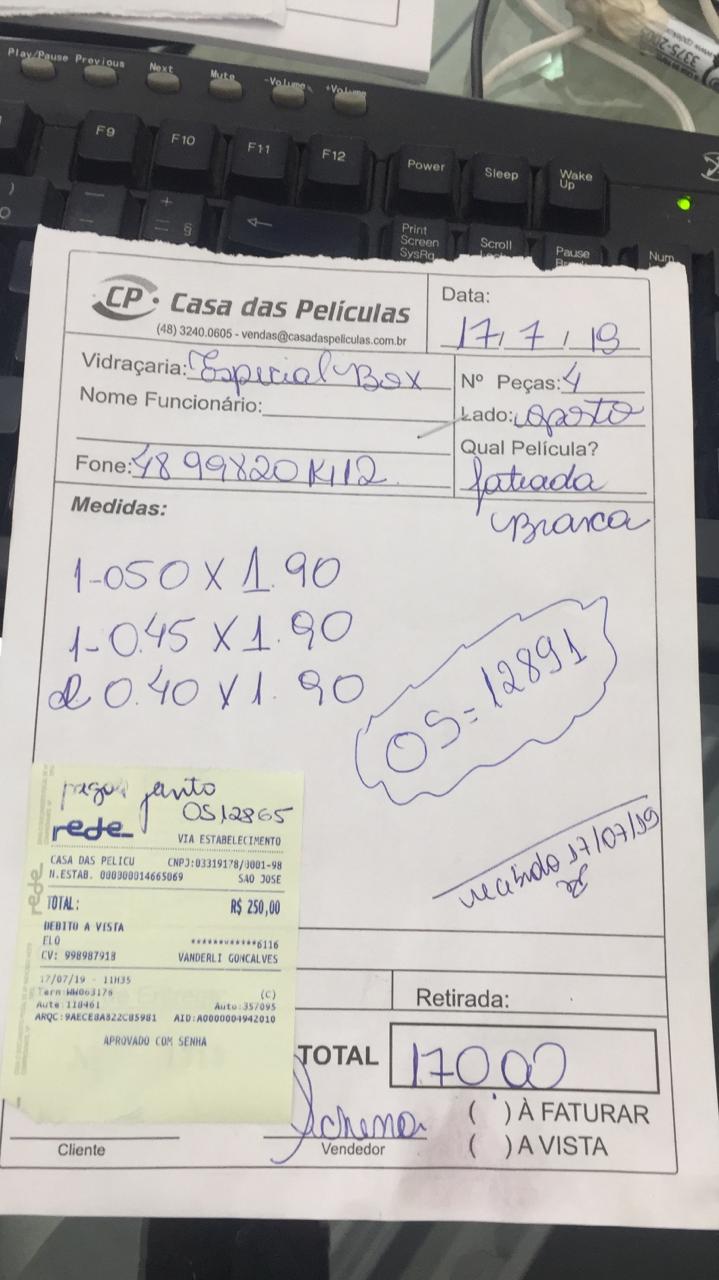 Play/Pause Previous Next Mute -Volume +Volume
F9 F10 F11 F12 Power Sleep Wake Up
Print Screen SysRq Scroll Pause Num
3375-2
CP Casa das Películas
(48) 3240.0605 - vendas@casadaspeliculas.com.br
Data:
17/7/19
Vidraçaria: Especial Box
Nome Funcionário:
Fone: 48 99820
Nº Peças: 4
Lado: oposto
Qual Película?
Jateada
Branca
Medidas:
1-050 X 1.90
1-0.45 X 1.90
2 0.40 X 1.90
OS=12891
recebido 17/07/19
pago junto
OS 12865
rede
VIA ESTABELECIMENTO
CASA DAS PELICU CNPJ:03319178/0001-98
N.ESTAB. 000000014665069 SAO JOSE
TOTAL: R$ 250,00
DEBITO A VISTA
ELO ************6116
CV: 998987918 VANDERLI GONCALVES
17/07/19 - 11H35
Term:WW063176 (C)
Aute:118461 Auto:357095
ARQC:9AECE8A822C85981 AID:A0000004942010
APROVADO COM SENHA
rede
Retirada:
TOTAL 17000
( ) À FATURAR
( ) A VISTA
Cliente
Vendedor